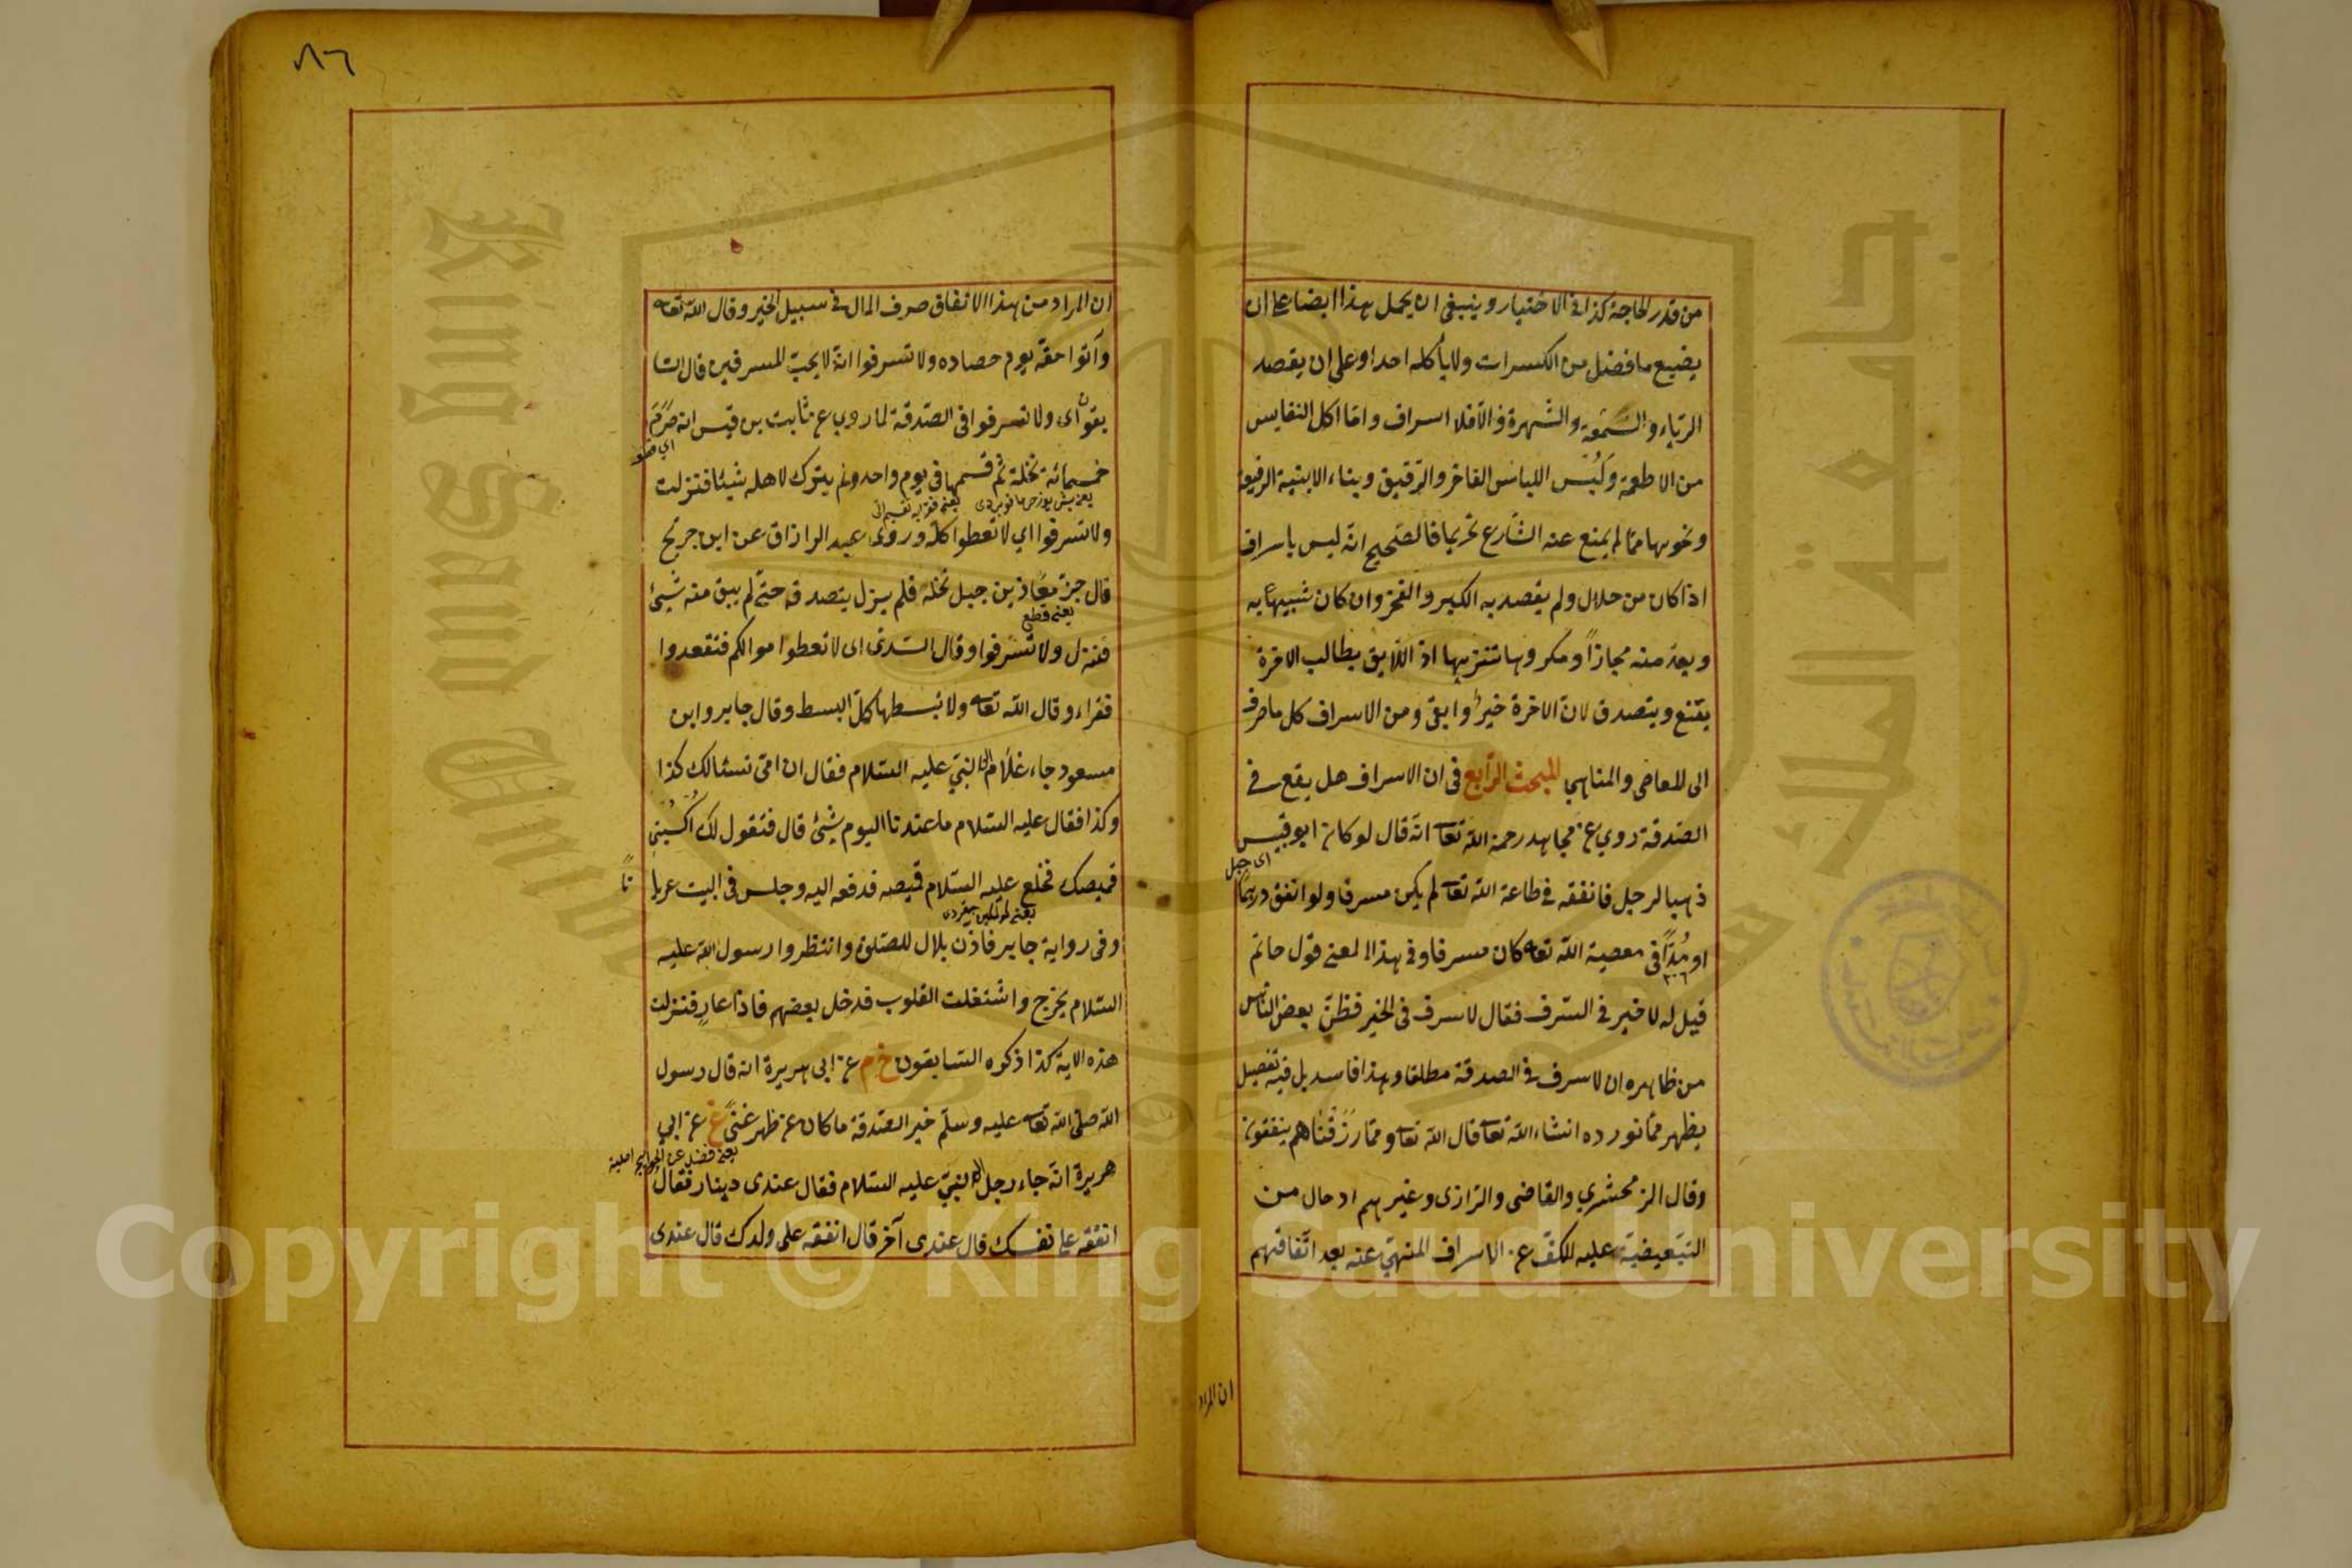 من قدر الحاجة كذا في الاختيار وينبغي ان يحمل هذا ايضا على ان
يضيع ما فضل من الكسرات ولا يأكله احد او على ان يقصد
الرياء والسمعة والشهرة والا فلا اسراف واما اكل النفايس
من الاطعمة ولبس اللباس الفاخر والرقيق وبناء الابنية الرفيعة
ونحوها مما لم يمنع عنه الشارع تحريما فالصحيح انه ليس باسراف
اذا كان من حلال ولم يقصد به الكبر والفخر وان كان شبيها به
ويعد منه مجازاً ومكروها تنزيها اذ اللايق بطالب الاخرة
يقنع ويتصدق لان الاخرة خير وابقى ومن الاسراف كل ما صرف
الى المعاصى والمناهي المبحث الرابع في ان الاسراف هل يقع في
الصدقة روي عن مجاهد رحمه الله تعا انه قال لو كان ابو قبيس
اى جبل
ذهبا لرجل فانفقه في طاعة الله تعا لم يكن مسرفا ولو انفق درهما
او مُدًّا في معصية الله تعا كان مسرفا وفي هذا المعنى قول حاتم
قيل له لا خير في السرف فقال لا سرف في الخير فظن بعض الناس
من ظاهره ان لا سرف في الصدقة مطلقا وهذا فاسد بل فيه تفصيل
يظهر مما نورده انشاء الله تعا قال الله تعا ومما رزقناهم ينفقون
وقال الزمخشري والقاضى والرازى وغيرهم ادخال من
التبعيضية عليه للكف عن الاسراف المنهي عنه بعد اتفاقهم
ان المراد
٨٦
ان المراد من هذا الانفاق صرف المال في سبيل الخير وقال الله تعا
وآتوا حقه يوم حصاده ولا تسرفوا انه لا يحب المسرفين قال السا
بقون اى ولا تسرفوا في الصدقة لما روي عن ثابت بن قيس انه صرم
خمسمائة نخلة ثم قسمها في يوم واحد ولم يترك لاهله شيئا فنزلت
ولا تسرفوا اي لا تعطوا كله وروى عبد الرازاق عن ابن جريج
قال جز معاذ بن جبل نخله فلم يزل يتصدق حتى لم يبق منه شيئ
يعنى قطع
فنزل ولا تسرفوا وقال السدى اى لا تعطوا موالكم فتقعدوا
فقراء وقال الله تعا ولا تبسطها كل البسط وقال جابر وابن
مسعود جاء غلام الى النبي عليه السلام فقال ان امى تسئالك كذا
وكذا فقال عليه السلام ما عندنا اليوم شيئ قال فتقول لك اكسنى
قميصك فخلع عليه السلام قميصه فدفعه اليه وجلس في البيت عريا
نًا
وفى رواية جابر فاذن بلال للصلوة وانتظروا رسول الله عليه
السلام يخرج واشتغلت القلوب فدخل بعضهم فاذا عارٍ فنزلت
هذه الاية كذا ذكره السابقون خ م عن ابى هريرة انه قال رسول
الله صلى الله تعا عليه وسلم خير الصدقة ما كان عن ظهر غنىً غ عن ابي
يعنى فضل عن الحوايج اصلية
هريرة انه جاء رجل الى النبي عليه السلام فقال عندى دينار فقال
انفقه على نفسك قال عندى آخر قال انفقه على ولدك قال عندى
Copyright © King Saud University
King Saud University
جامعة الملك سعود
195